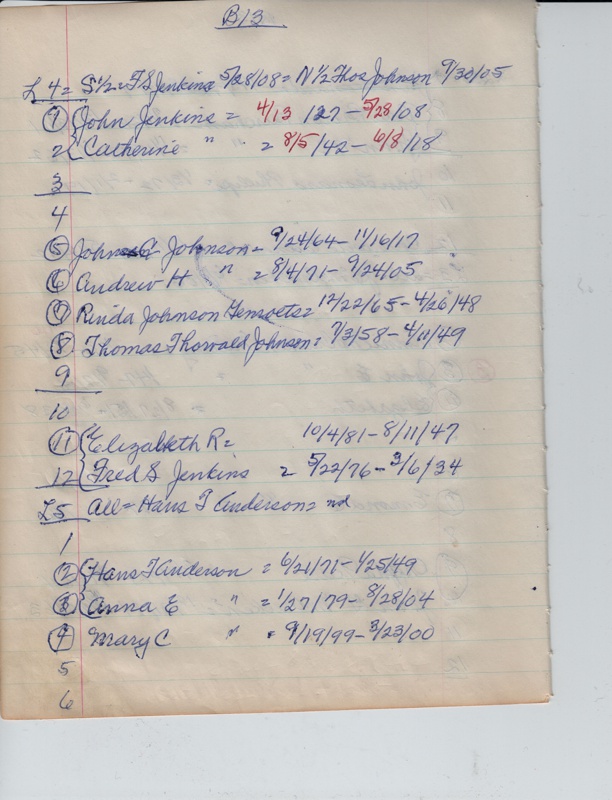 B13
L 4 = S 1/2 = F S Jenkins 5/28/08 = N 1/2 Thos Johnson 9/30/05
① John Jenkins = 4/13/27 - 5/28/08
2 Catherine " = 8/5/42 - 6/8/18
3
4
⑤ John Johnson = 9/24/64 - 11/16/17
⑥ Andrew H " = 8/4/71 - 9/24/05
⑦ Rinda Johnson = 12/22/65 - 4/26/48
⑧ Thomas Thorvald Johnson = 7/3/58 - 4/11/49
9
10
⑪ Elizabeth R = 10/4/81 - 8/11/47
12 Fred S Jenkins = 5/22/76 - 3/6/34
L5 All = Hans T Anderson = nd
1
② Hans T Anderson = 6/21/71 - 1/25/49
③ Anna E " = 1/27/79 - 8/28/04
④ Mary C " = 9/19/99 - 3/23/00
5
6